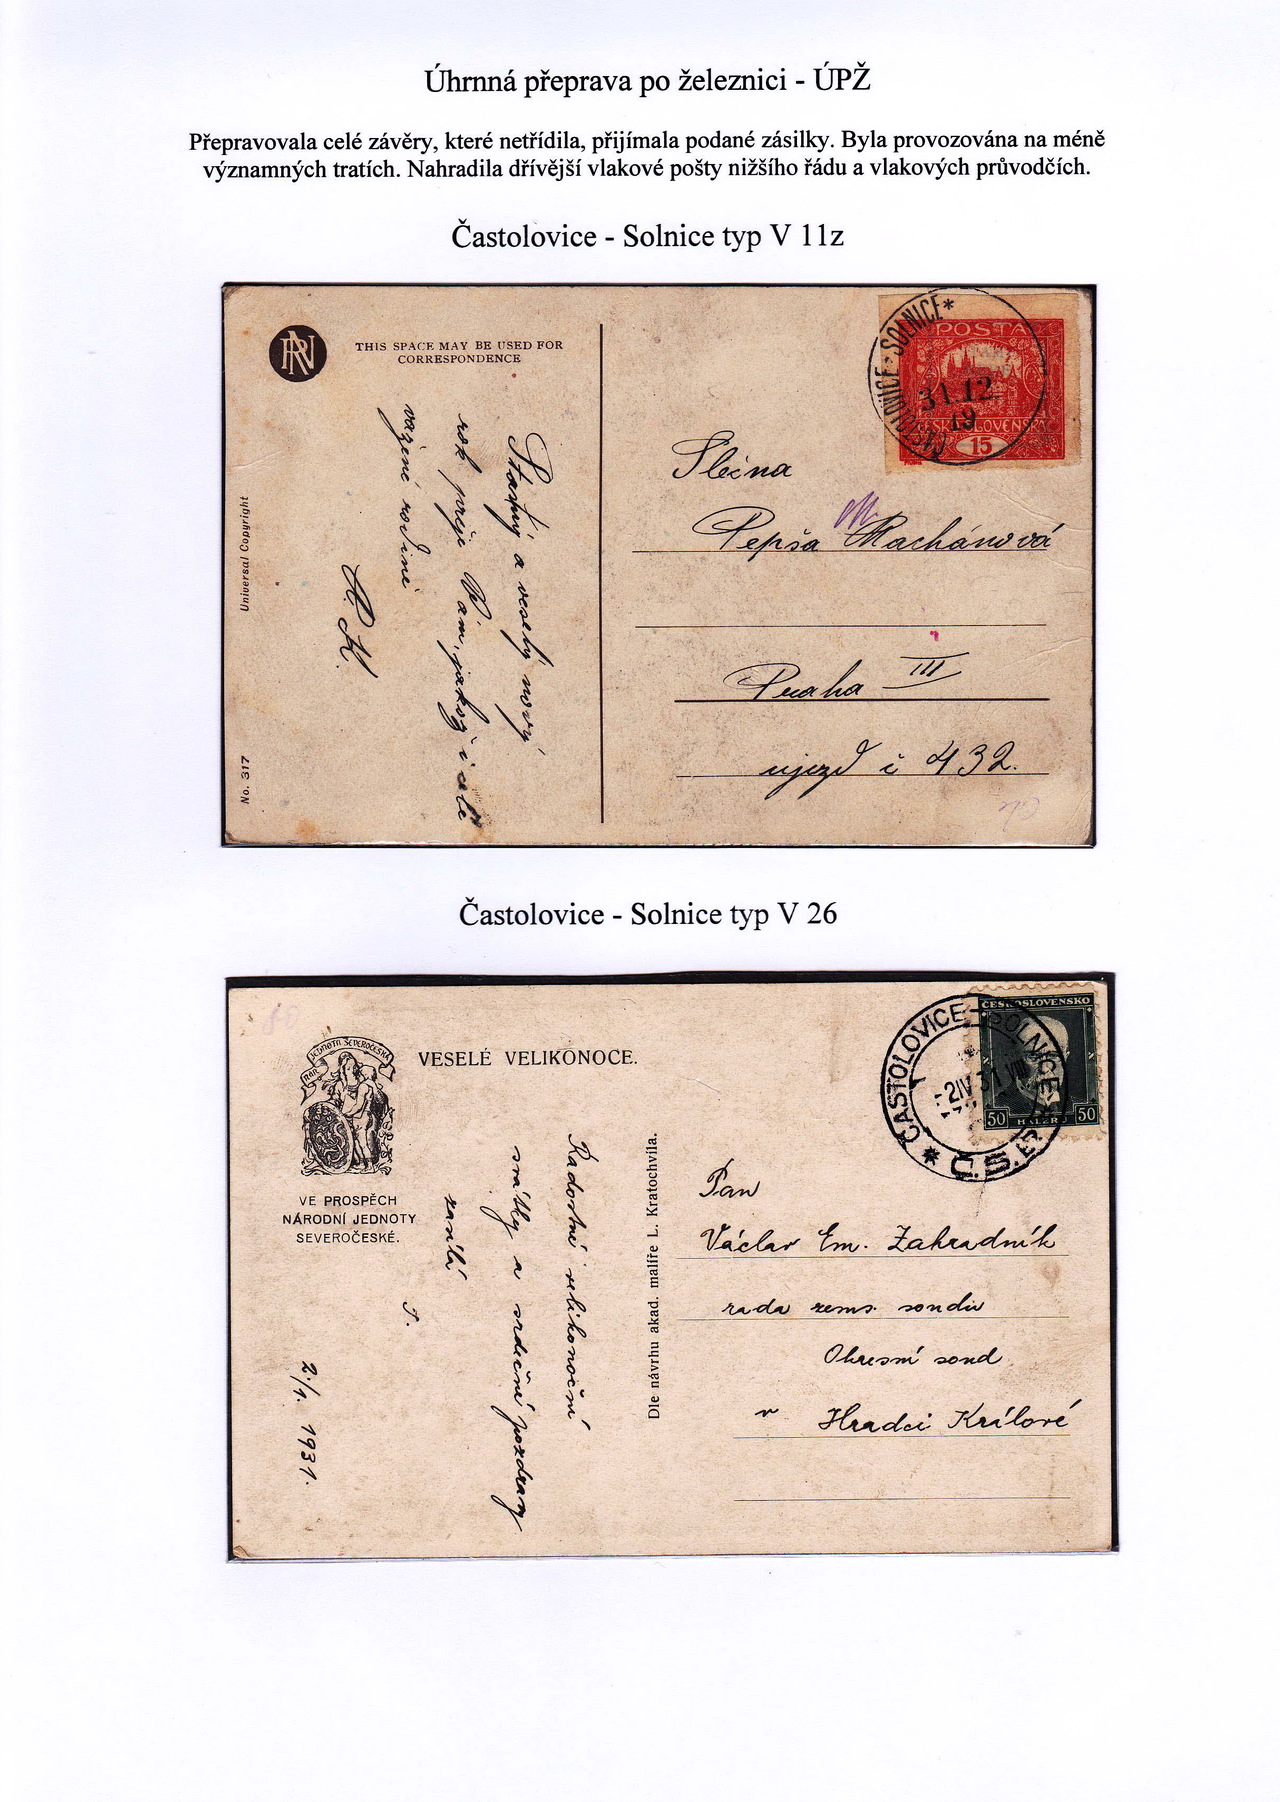 Úhrnná přeprava po železnici - ÚPŽ
Přepravovala celé závěry, které netřídila, přijímala podané zásilky. Byla provozována na méně
významných tratích. Nahradila dřívější vlakové pošty nižšího řádu a vlakových průvodčích.
Častolovice - Solnice typ V 11z
THIS SPACE MAY BE USED FOR
CORRESPONDENCE
Šťastný a veselý nový
rok přeje Vám, jakož i celé
vážené rodině
H. K.
Universal Copyright
No. 317
ČASTOLOVICE - SOLNICE *
31.12.
19
POŠTA
ČESKOSLOVENSKÁ
15
Slečna
Pepša Machánová
Praha III
ujezd č 432.
Častolovice - Solnice typ V 26
NÁR. JEDNOTA SEVEROČESKÁ
VE PROSPĚCH
NÁRODNÍ JEDNOTY
SEVEROČESKÉ.
VESELÉ VELIKONOCE.
Radostné velikonoční
svátky a srdečné pozdravy
zasílá
J.
2/4. 1931.
Dle návrhu akad. malíře L. Kratochvíla.
ČASTOLOVICE - SOLNICE
2 IV 31 VIII
* Č.S.
ČESKOSLOVENSKO
50 HALÉŘŮ 50
Pan
Václav Em. Zahradník
rada zems. soudu
Okresní soud
v Hradci Králové